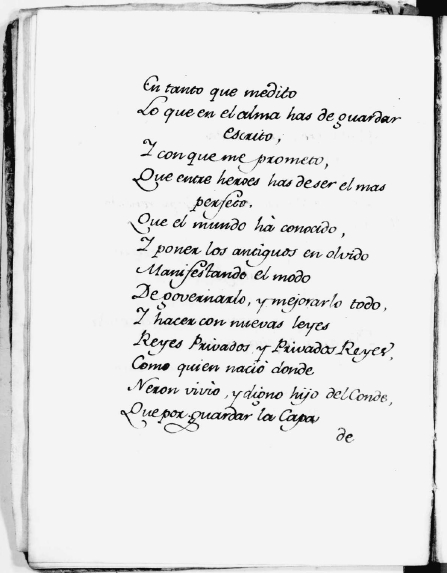 En tanto que medito
Lo que en el alma has de guardar
escrito,
Y con que me prometo,
Que entre heroes has de ser el mas
perfeto.
Que el mundo hà conocido,
Y poner los antiguos en olvido
Manifestando el modo
De governarlo, y mejorarlo todo,
Y hacer con nuevas leyes
Reyes Privados, y Privados Reyes,
Como quien naciò donde
Neron viviò, y digno hijo del Conde,
Que por guardar la Capa
de